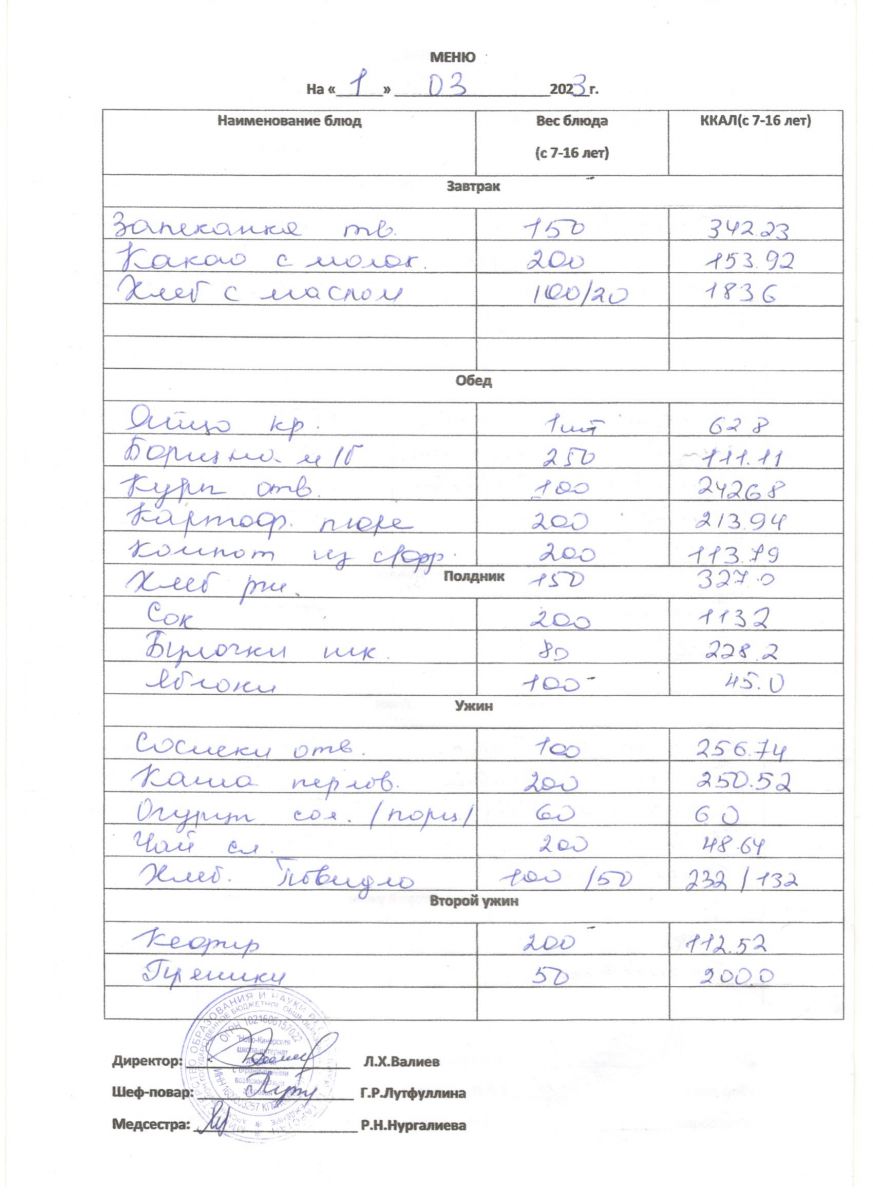 МЕНЮ
На « 1 » 03 2023 г.
Наименование блюд Вес блюда (с 7-16 лет) ККАЛ(с 7-16 лет)
Завтрак
Запеканка тв. 150 342.23
Какао с молок. 200 153.92
Хлеб с маслом 100/20 183 6
Обед
Яйцо кр. 1шт 62 8
Борщ на м/б 250 111.11
Куры отв. 100 242 68
Картоф. пюре 200 213.94
Компот из сфр. 200 113.79
Хлеб рж. 150 327.0
Полдник
Сок 200 113 2
Булочки шк. 80 228.2
Яблоки 100 45.0
Ужин
Сосиски отв. 100 256.74
Каша перлов. 200 250.52
Огурцы сол. /порц/ 60 6 0
Чай сл. 200 48 64
Хлеб. Повидло 100 /50 232 / 132
Второй ужин
Кефир 200 112.52
Пряники 50 200.0
Директор: Л.Х.Валиев
Шеф-повар: Г.Р.Лутфуллина
Медсестра: Р.Н.Нургалиева